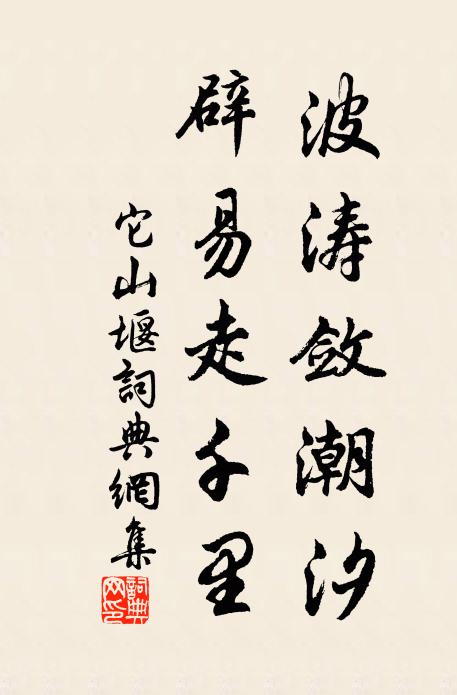 波涛斂潮汐
辟易走千里
它山堰詞典網集
詞典網印